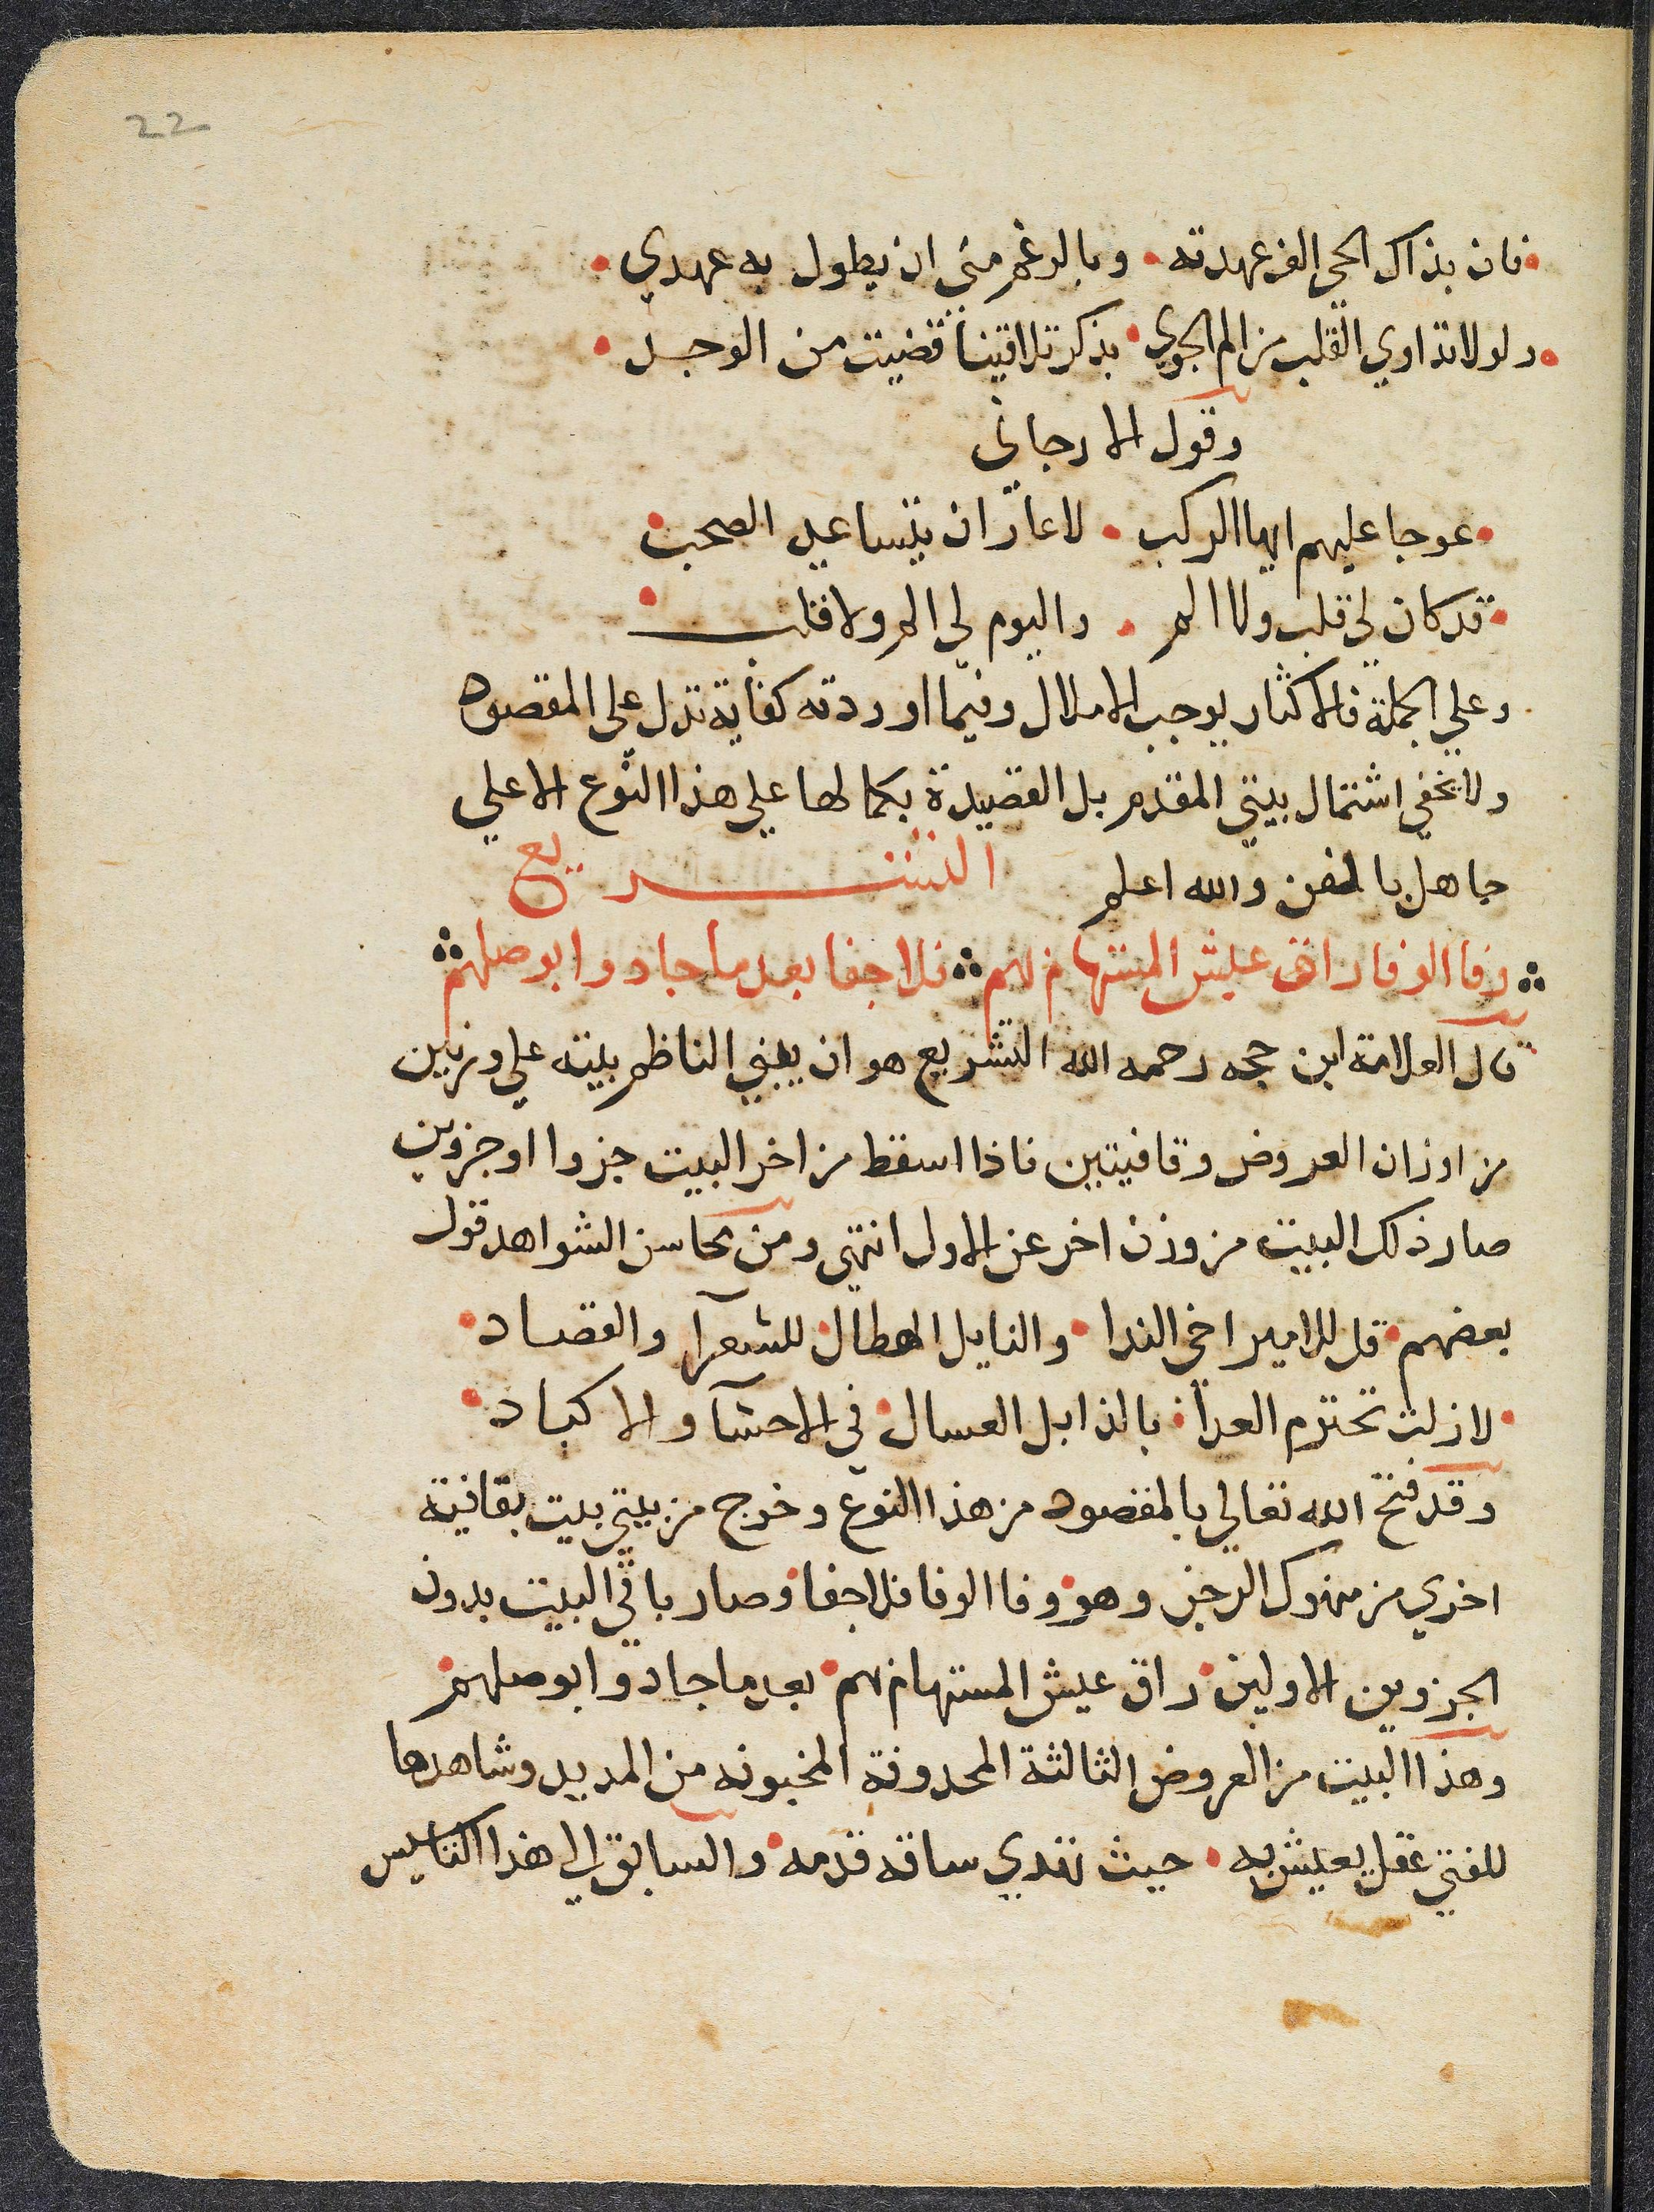 22
فان بذاك الحي الف عهدته • وبالرغم مني ان يطول به عهدي •
ولولا تداوي القلب من الم الجوي • بذكر تلاقينا قضيت من الوجد •
وقول الارجاني
عوجا عليهم ايها الركب • لا عار ان يتساعد الصحب
قد كان لي قلب ولا الم • واليوم لي الم ولا قلب
وعلي الجملة فالاكثار يوجب الاملال وفيما اوردته كفاية تدل علي المقصود
ولا يخفي اشتمال بيتي المقدم بل القصيدة بكمالها علي هذا النوع الا علي
جاهل بالفن والله اعلم التشريع
وفا الوفا راق عيش المستهام لهم فلا جفا بعد ما جادوا بوصلهم
قال العلامة ابن حجه رحمه الله التشريع هو ان يبني الناظم بيته علي وزنين
من اوزان العروض وقافيتين فاذا اسقط من اخر البيت جزوا او جزوين
صار ذلك البيت من وزن اخر عن الاول انتهي ومن محاسن الشواهد قول
بعضهم • قل للامير اخي الندا • والنايل الهطال للشعرآ والقصاد •
لا زلت تحترم العدا • بالذابل العسال في الاحشآ والاكباد •
وقد فتح الله تعالي بالمقصود من هذا النوع وخرج من بيتي بيت بقافية
اخري من منهوك الرجز وهو وفا الوفا فلا جفا وصار باقي البيت بدون
الجزوين الاولين راق عيش المستهام لهم • بعد ما جادوا بوصلهم
وهذا البيت من العروض الثالثة المحدوفة المخبونه من المديد وشاهدها
للفتي عقل يعيش به • حيث تهدي ساقه قدمه والسابق الي هذا